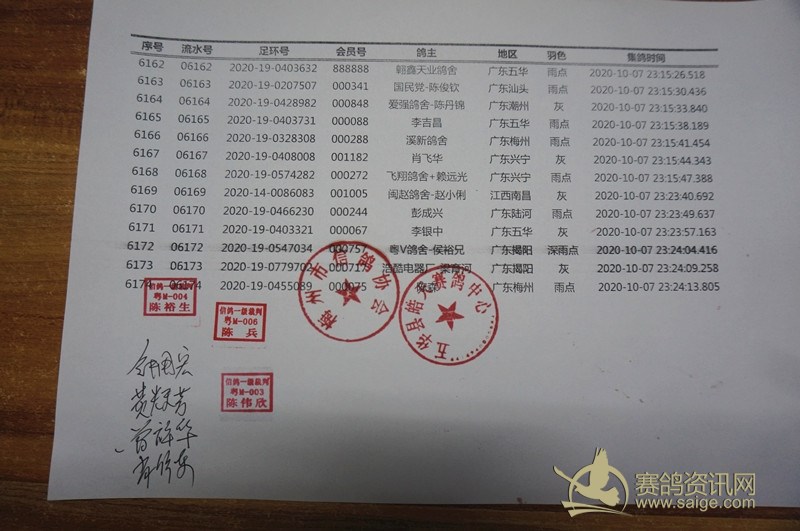 序号 流水号 足环号 会员号 鸽主 地区 羽色 集鸽时间
6162 06162 2020-19-0403632 888888 翱鑫天业鸽舍 广东五华 雨点 2020-10-07 23:15:26.518
6163 06163 2020-19-0207507 000341 国民党-陈俊钦 广东汕头 雨点 2020-10-07 23:15:30.436
6164 06164 2020-19-0428982 000848 爱强鸽舍-陈丹锦 广东潮州 灰 2020-10-07 23:15:33.840
6165 06165 2020-19-0403731 000088 李吉昌 广东五华 雨点 2020-10-07 23:15:38.189
6166 06166 2020-19-0328308 000288 溪新鸽舍 广东梅州 雨点 2020-10-07 23:15:41.454
6167 06167 2020-19-0408008 001182 肖飞华 广东兴宁 灰 2020-10-07 23:15:44.343
6168 06168 2020-19-0574282 000272 飞翔鸽舍+赖远光 广东兴宁 雨点 2020-10-07 23:15:47.388
6169 06169 2020-14-0086083 001005 闽赵鸽舍-赵小俐 江西南昌 灰 2020-10-07 23:23:40.692
6170 06170 2020-19-0466230 000244 彭成兴 广东陆河 雨点 2020-10-07 23:23:49.637
6171 06171 2020-19-0403321 000067 李银中 广东五华 灰 2020-10-07 23:23:57.163
6172 06172 2020-19-0547034 000757 粤V鸽舍-侯裕兄 广东揭阳 深雨点 2020-10-07 23:24:04.416
6173 06173 2020-19-0779702 000717 浩酷电器厂-梁育河 广东揭阳 灰 2020-10-07 23:24:09.258
6174 06174 2020-19-0455089 000075 广东梅州 雨点 2020-10-07 23:24:13.805
梅州市信鸽协会
五华县皓天赛鸽中心
信鸽一级裁判
粤M-004
陈裕生
信鸽一级裁判
粤M-006
陈兵
信鸽一级裁判
粤M-003
陈伟欣
赛鸽资讯网
www.saige.com